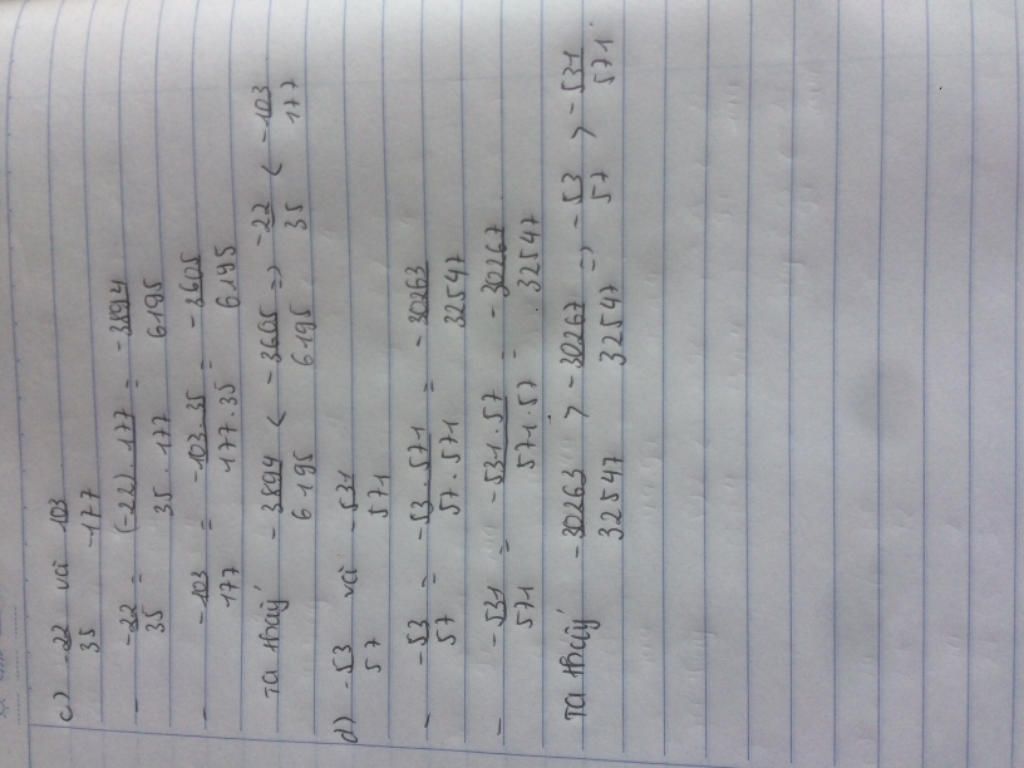 c) -22/35 và 103/-177
- -22/35 = (-22).177/35.177 = -3894/6195
- -103/177 = -103.35/177.35 = -3605/6195
Ta thấy -3894/6195 < -3605/6195 => -22/35 < -103/177
d) -53/57 và -531/571
- -53/57 = -53.571/57.571 = -30263/32547
- -531/571 = -531.57/571.57 = -30267/32547
Ta thấy -30263/32547 > -30267/32547 => -53/57 > -531/571